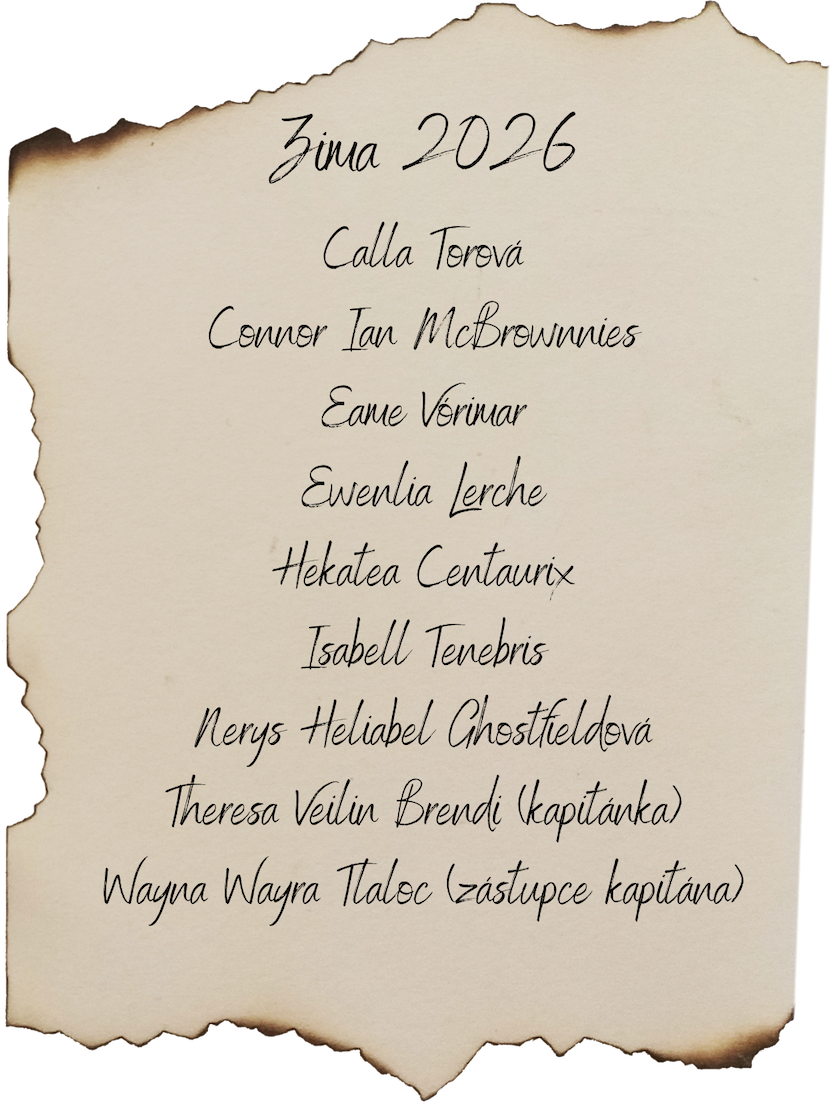 Zima 2026
Calla Torová
Connor Ian McBrownnies
Eame Vórimar
Ewenlia Lerche
Hekatea Centaurix
Isabell Tenebris
Nerys Heliabel Ghostfieldová
Theresa Veilin Brendi (kapitánka)
Wayna Wayra Tlaloc (zástupce kapitána)